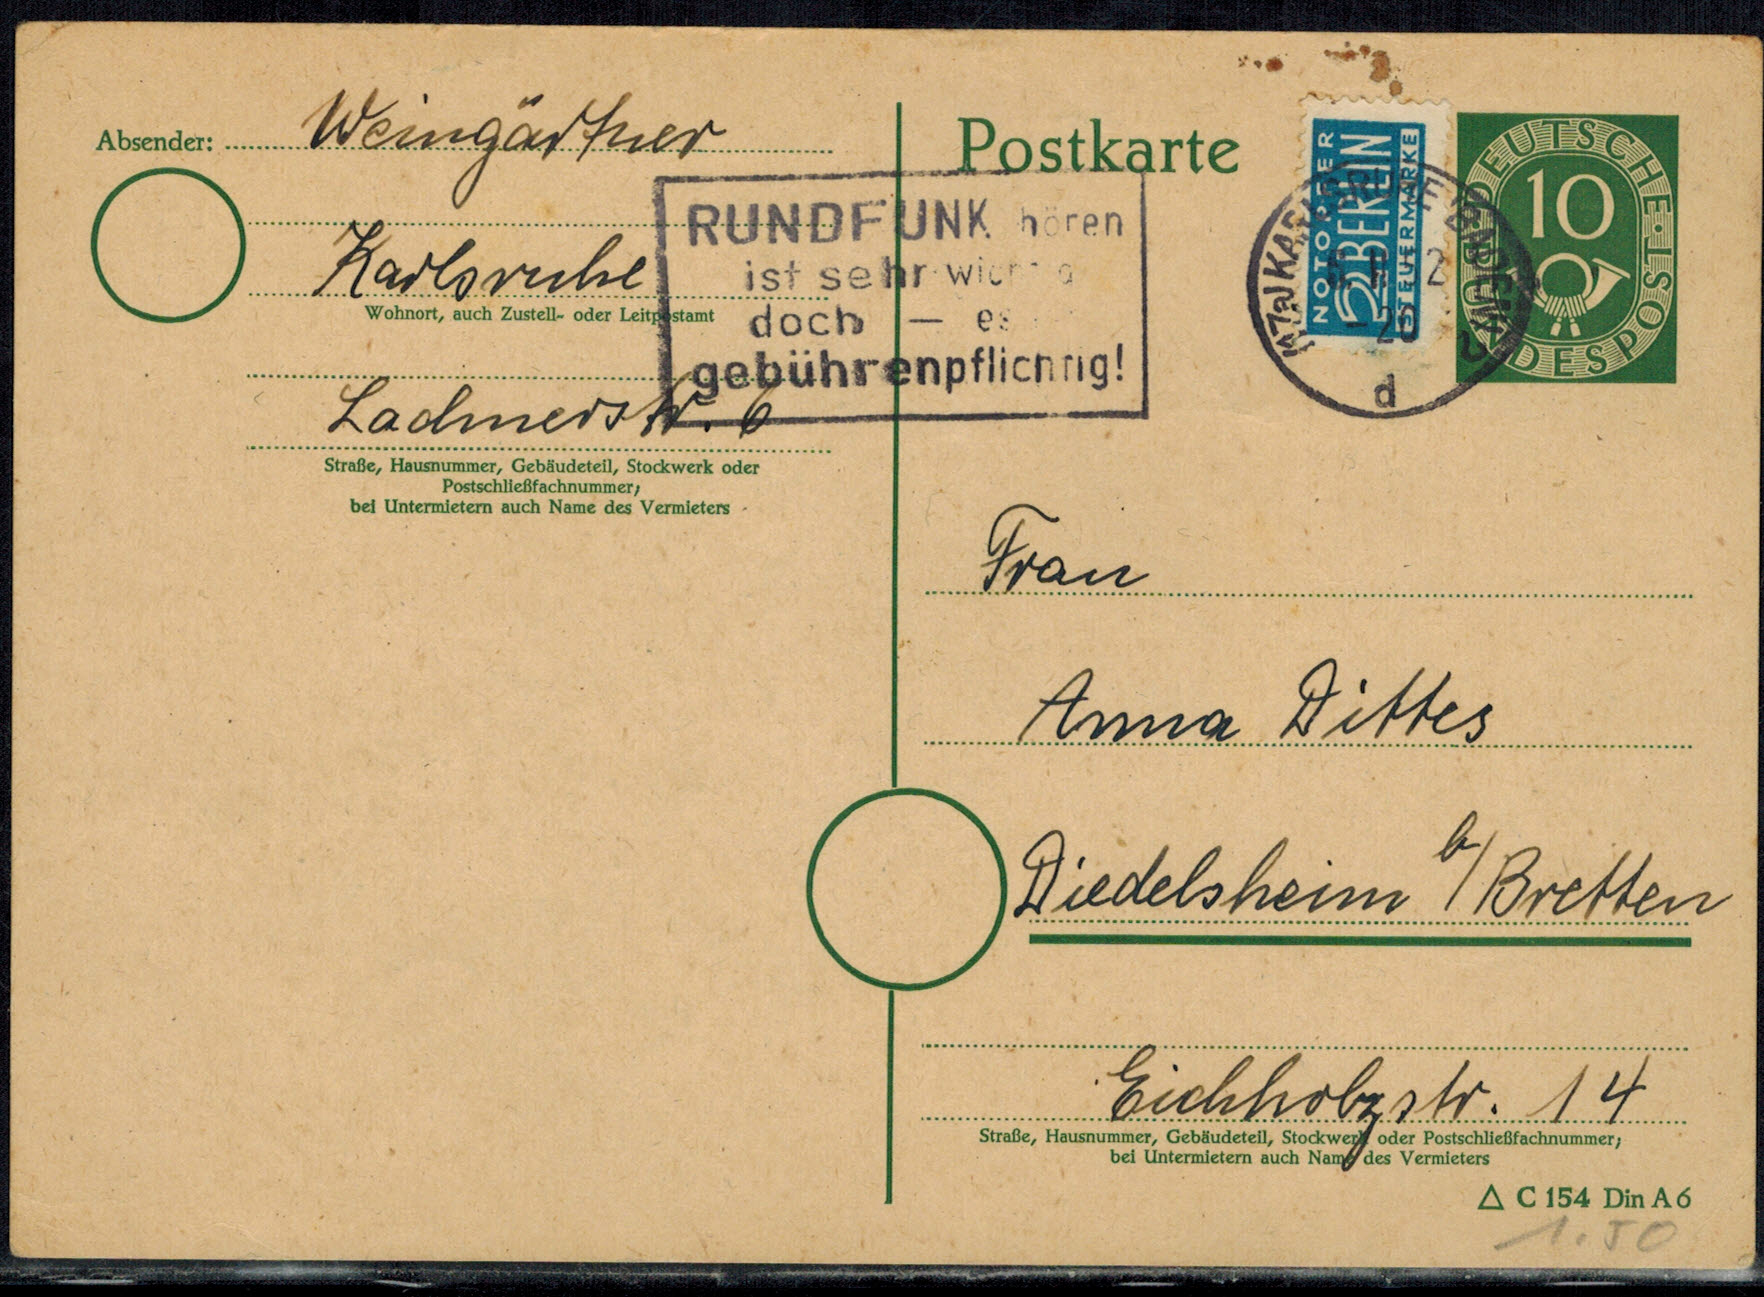 Absender: Weingärtner
Karlsruhe
Wohnort, auch Zustell- oder Leitpostamt
Ladmerstr. 6
Straße, Hausnummer, Gebäudeteil, Stockwerk oder
Postschließfachnummer;
bei Untermietern auch Name des Vermieters
RUNDFUNK hören
ist sehr
doch — es
gebührenpflichtig!
Postkarte
NOTOPFER
2 BERLIN
STEUERMARKE
DEUTSCHE
10
BUNDESPOST
d
Frau
Anna Dittes
Diedelsheim b/Bretten
Eichholzstr. 14
Straße, Hausnummer, Gebäudeteil, Stockwerk oder Postschließfachnummer;
bei Untermietern auch Name des Vermieters
△ C 154 Din A 6
1.50